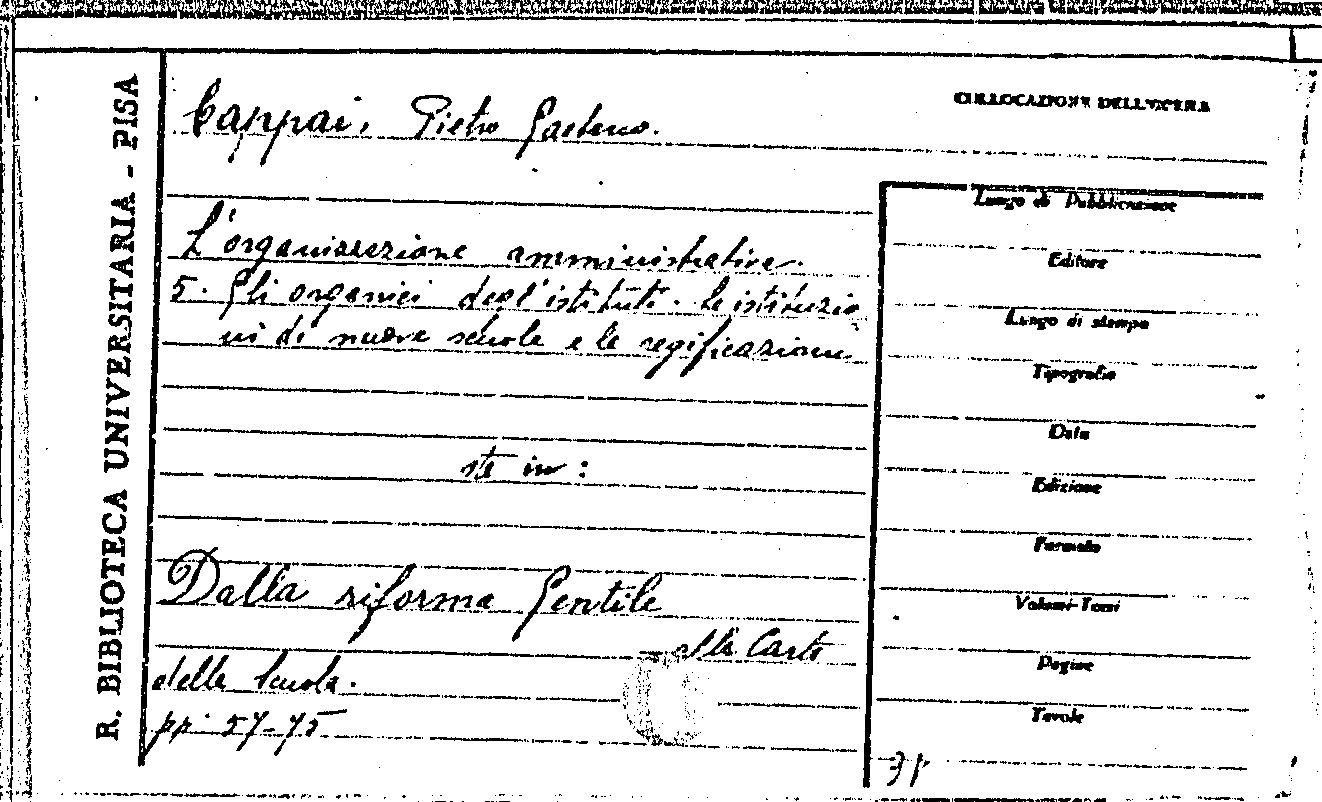 R. BIBLIOTECA UNIVERSITARIA - PISA
Cappai, Pietro Gaetano.
COLLOCAZIONE DELL'OPERA
L'organizzazione amministrativa.
5. Gli organici degl'istituti. Le istituzio
ni di nuove scuole e le regificazioni
sta in:
Dalla riforma Gentile
alla Carta
della Scuola.
pp. 57-75
Luogo di Pubblicazione
Editore
Luogo di stampa
Tipografia
Data
Edizione
Formato
Volumi-Tomi
Pagine
Tavole